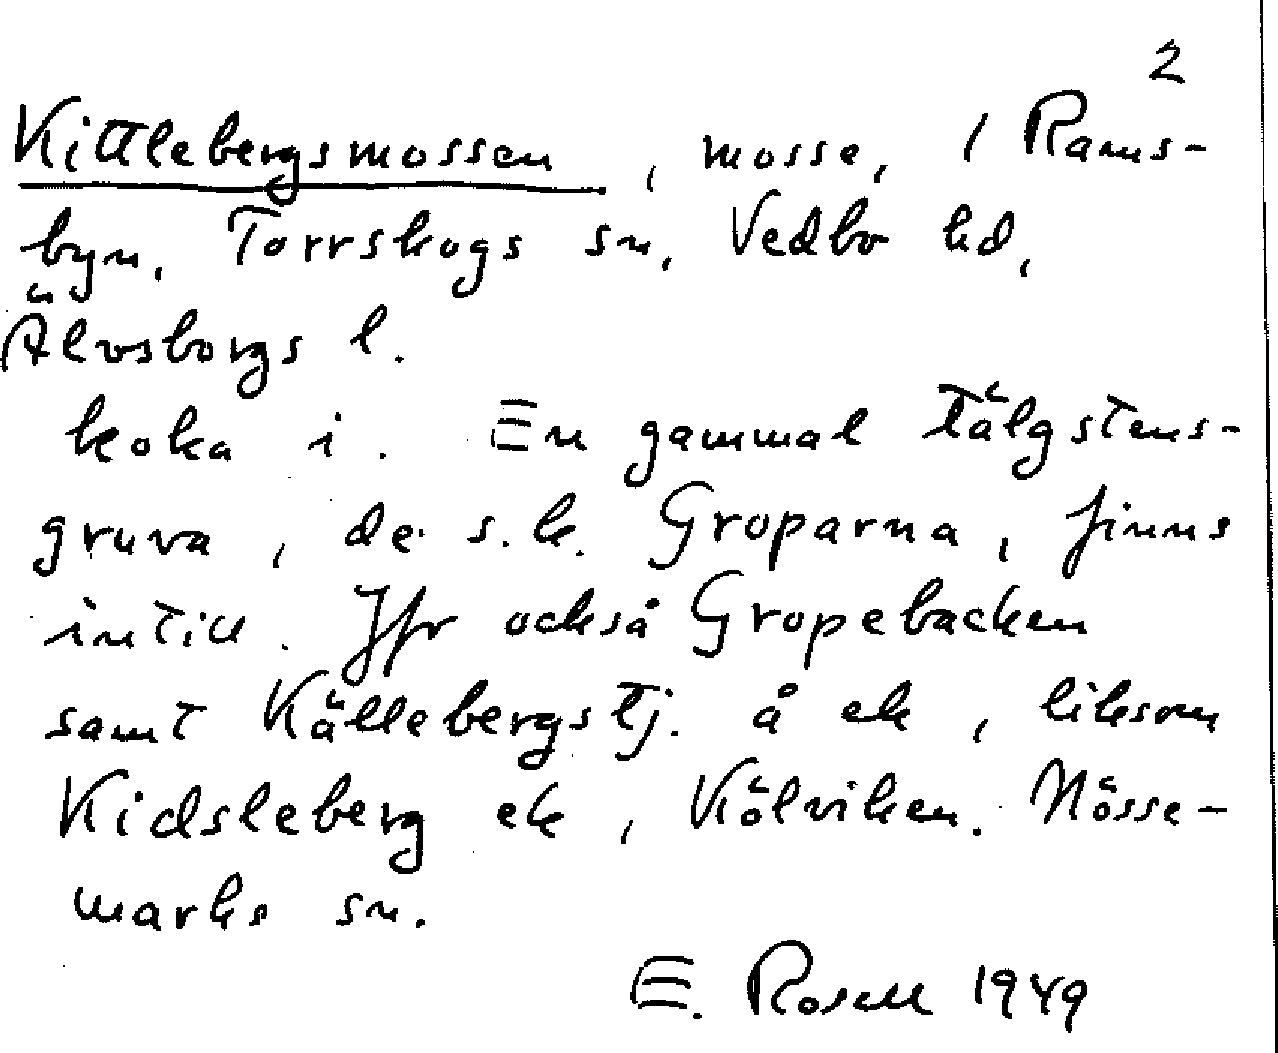 2
Kittlebergsmossen, mosse, / Rams-
byn, Torrskogs sn, Vedbo hd,
Älvsborgs l.
koka i. En gammal tälgstens-
gruva, de s.k. Groparna, finns
intill. Jfr också Gropebacken
samt Källebergstj. å ek, liksom
Kidsleberg ek, Kölviken. Nösse-
marks sn.
E. Rosell 1949